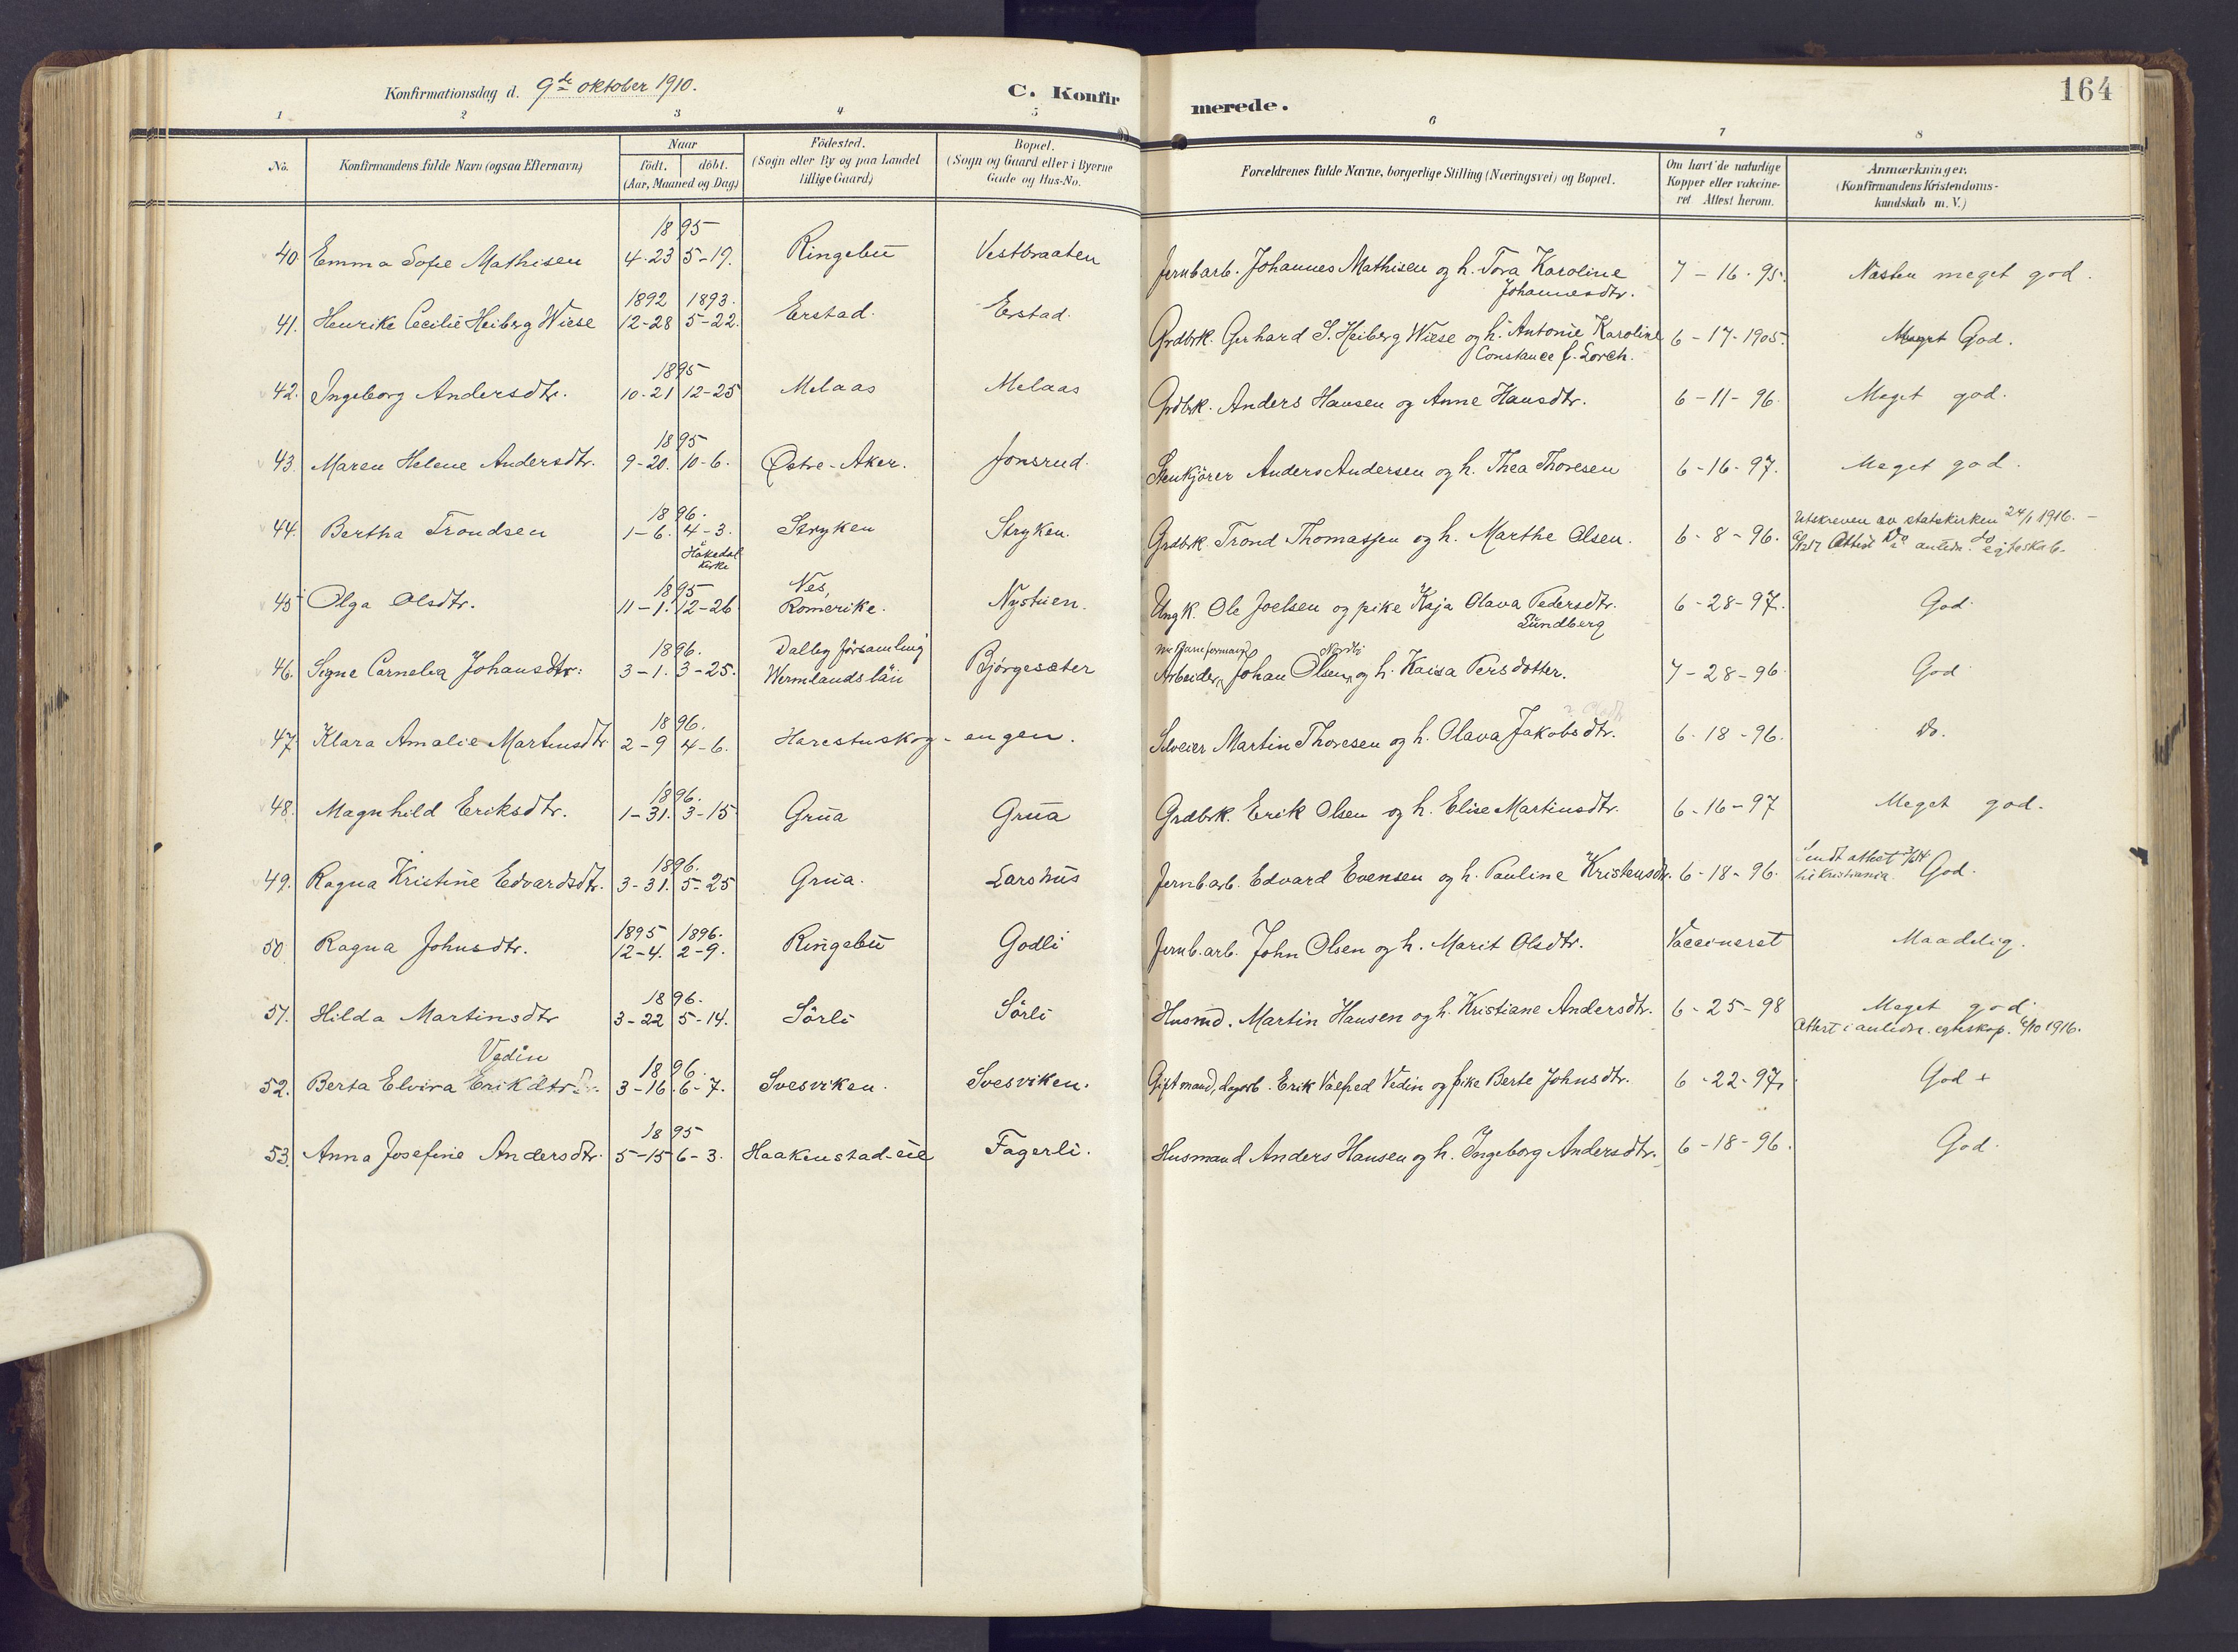 Konfirmationsdag d. 9de oktober 1910.
C. Konfirmerede.
164
1 2 3 4 5 6 7 8
No. | Konfirmandens fulde Navn (ogsaa Efternavn) | Naar födt. döbt. (Aar, Maaned og Dag) | Födested. (Sogn eller By og paa Landet tillige Gaard) | Bopæl. (Sogn og Gaard eller i Byerne Gade og Hus-No. | Forældrenes fulde Navne, borgerlige Stilling (Næringsvei) og Bopæl. | Om havt de naturlige Kopper eller vakcineret Attest herom. | Anmærkninger. (Konfirmandens Kristendomskundskab m. V.)
1895
40. Emma Sofie Mathisen | 4-23 | 5-19. | Ringebu | Vestbraaten | Jernbarb. Johannes Mathisen og h. Tora Karoline Johannesdtr. | 7-16-95. | Næsten meget god.
1892 1893.
41. Henrike Cecilie Heiberg Wiese | 12-28 | 5-22. | Erstad. | Erstad. | Grdbrk. Gerhard S. Heiberg Wiese og h. Antonie Karoline Constance f. Lorch. | 6-17-1905. | Meget God.
1895
42. Ingeborg Andersdtr. | 10-21 | 12-25 | Melaas | Melaas | Grdbrk. Anders Hansen og Anne Hansdtr. | 6-11-96. | Meget god.
1895
43. Maren Helene Andersdtr. | 9-20. | 10-6. | Østre-Aker. | Jonsrud. | Stenkjörer Anders Andersen og h. Thea Thoresen | 6-16-97. | Meget god.
1896.
44. Bertha Trondsen | 1-6. | 4-3. Hakedal kirke | Stryken | Stryken. | Grdbrk. Trond Thomassen og h. Marthe Olsen. | 6-8-96. | Utskreven av statskirken 24/1 1916. - Attest i anledn. egteskab.
1895
45 Olga Olsdtr. | 11-1. | 12-26 | Nes, Romerike. | Nystuen. | Ungk. Ole Joelsen og pike Kaja Olava Pedersdtr. Lundberg | 6-28-97. | God.
1896.
46. Signe Cornelia Johansdtr: | 3-1. | 3-25. | Dalby församling Wermlands län | Bjørgesæter | Arbeider, Johan Olsen Nordli og h. Kaisa Persdotter. | 7-28-96. | God
1896.
47. Klara Amalie Martinsdtr | 2-9 | 4-6. | Harestuskog-engen. | Sliveier Martin Thoresen og h. Olava Jakobsdtr. | 6-18-96. | Do.
1896.
48. Magnhild Eriksdtr. | 1-31. | 3-15 | Grua | Grua | Grdbrk. Erik Olsen og h. Elise Martinsdtr. | 6-16-97 | Meget god.
1896.
49. Ragna Kristine Edvardsdtr. | 3-31. | 5-25 | Grua. | Larshus | Jernb.arb. Edvard Evensen og h. Pauline Kristensdtr. | 6-18-96. | Sendt attest til Kristiania. God.
1895 1896.
50 Ragna Johnsdtr. | 12-4. | 2-9. | Ringebu | Godli | Jernb.arb. John Olsen og h. Marit Olsdtr. | Vaccineret | Maadelig.
1896.
51. Hilda Martinsdtr | 3-22 | 5-14. | Sörli | Sörli | Husmd. Martin Hansen og h. Kristiane Andersdtr. | 6-25-98 | Meget god. Attest i anledn. egteskap. 6/10 1916.
1896.
52. Berta Elvira Erikdtr Vedin | 3-16. | 6-7. | Svesviken. | Svesviken. | Gift mand, dagarb. Erik Valfred Vedin og pike Berte Johnsdtr. | 6-22-97. | God +
1895
53. Anna Josefine Andersdtr. | 5-15 | 6-3. | Haakenstad-eie | Fagerli. | Husmand Anders Hansen og h. Ingeborg Andersdtr. | 6-18-96. | God.